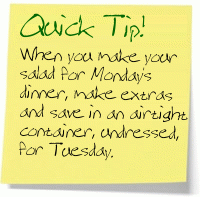 Quick Tip!
When you make your
salad for Monday's
dinner, make extras
and save in an airtight
container, undressed,
for Tuesday.